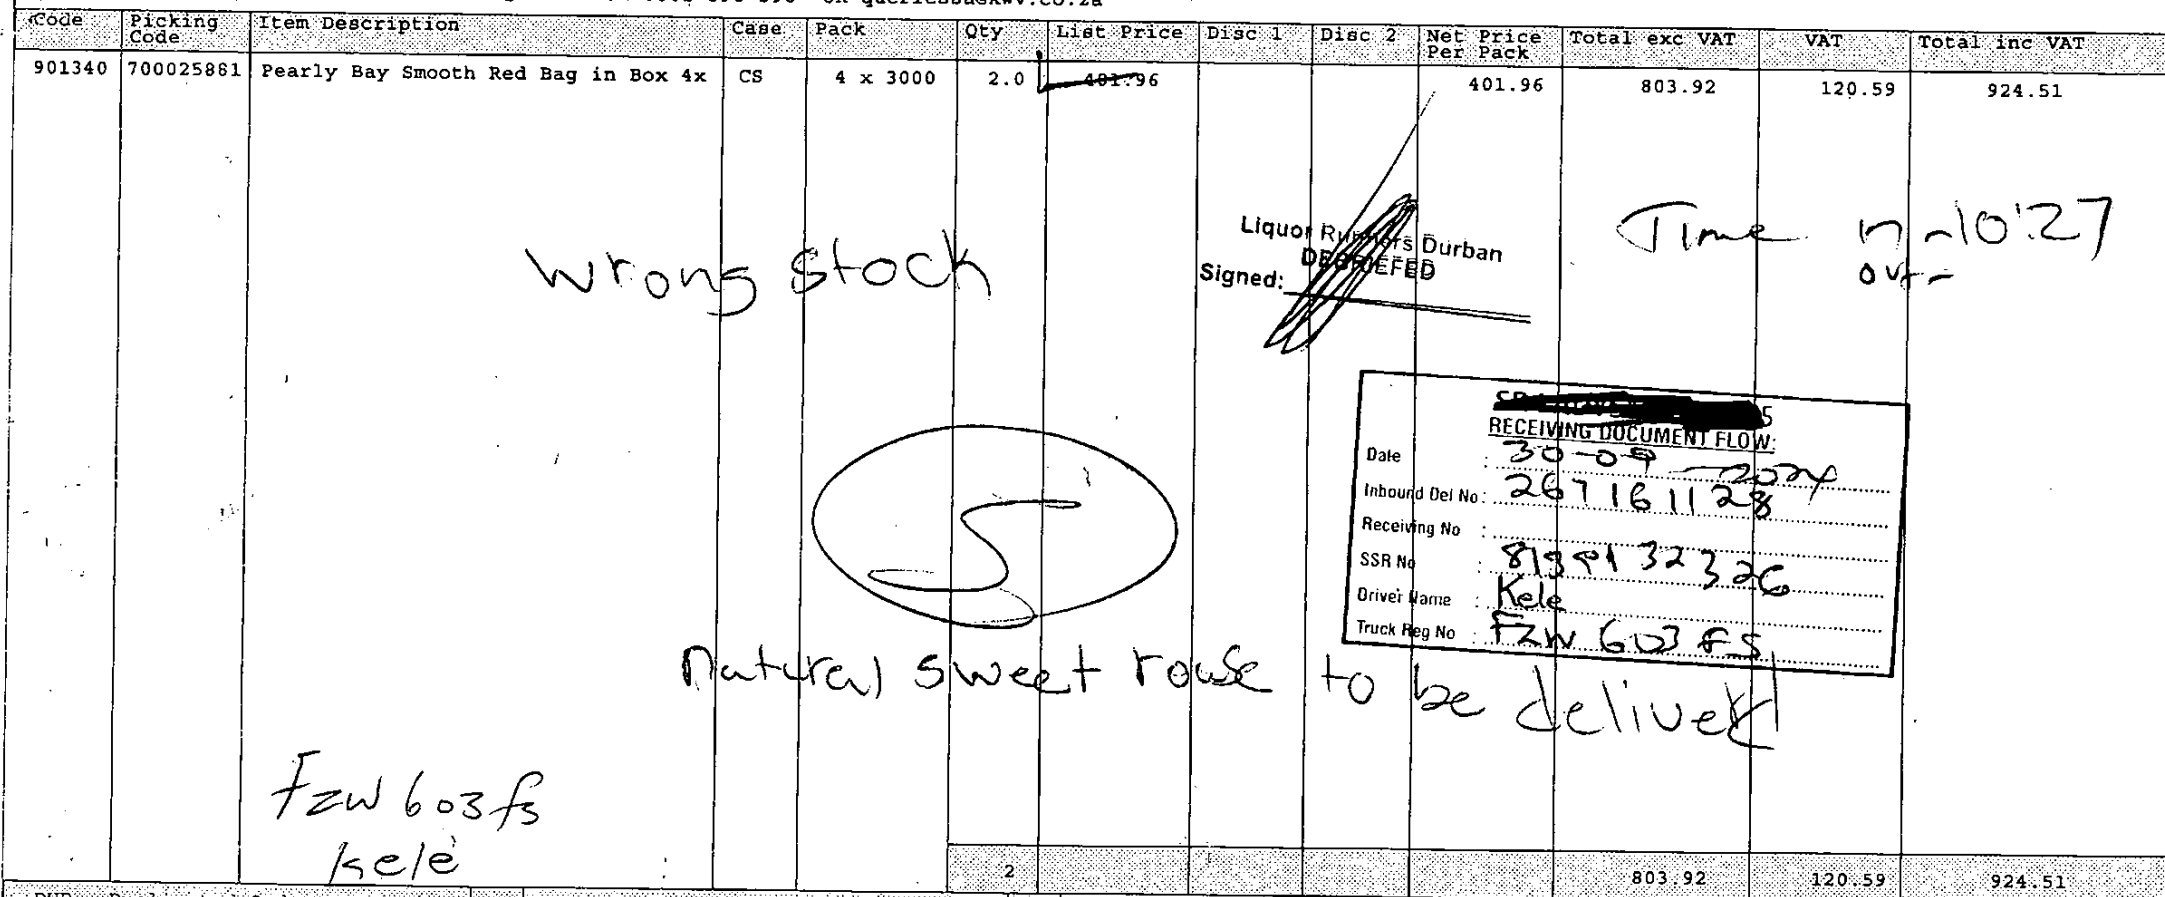 queriessa@kwv.co.za
Code Picking Code Item Description Case Pack Qty List Price Disc 1 Disc 2 Net Price Per Pack Total exc VAT VAT Total inc VAT
901340 700025861 Pearly Bay Smooth Red Bag in Box 4x CS 4 x 3000 2.0 401.96 401.96 803.92 120.59 924.51
Time in - 10:27
out -
Wrong stock
Liquor Runners Durban
DEBRIEFED
Signed:
RECEIVING DOCUMENT FLOW:
Date : 30-09-2024
Inbound Del No : 267161128
Receiving No :
SSR No :
Driver Name : Kele
Truck Reg No : FZW 603 FS
natural sweet to be delivered
FZW 603 fs
kele
2 803.92 120.59 924.51